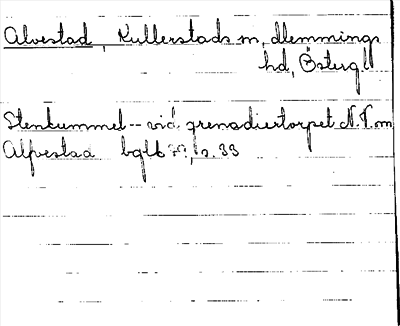 Alvestad, Kullerstads sn, Memmings
hd, Östergl
Stenkummel -- vid grenadiertorpet N.V.m
Alfvestad bgl6 s. 33